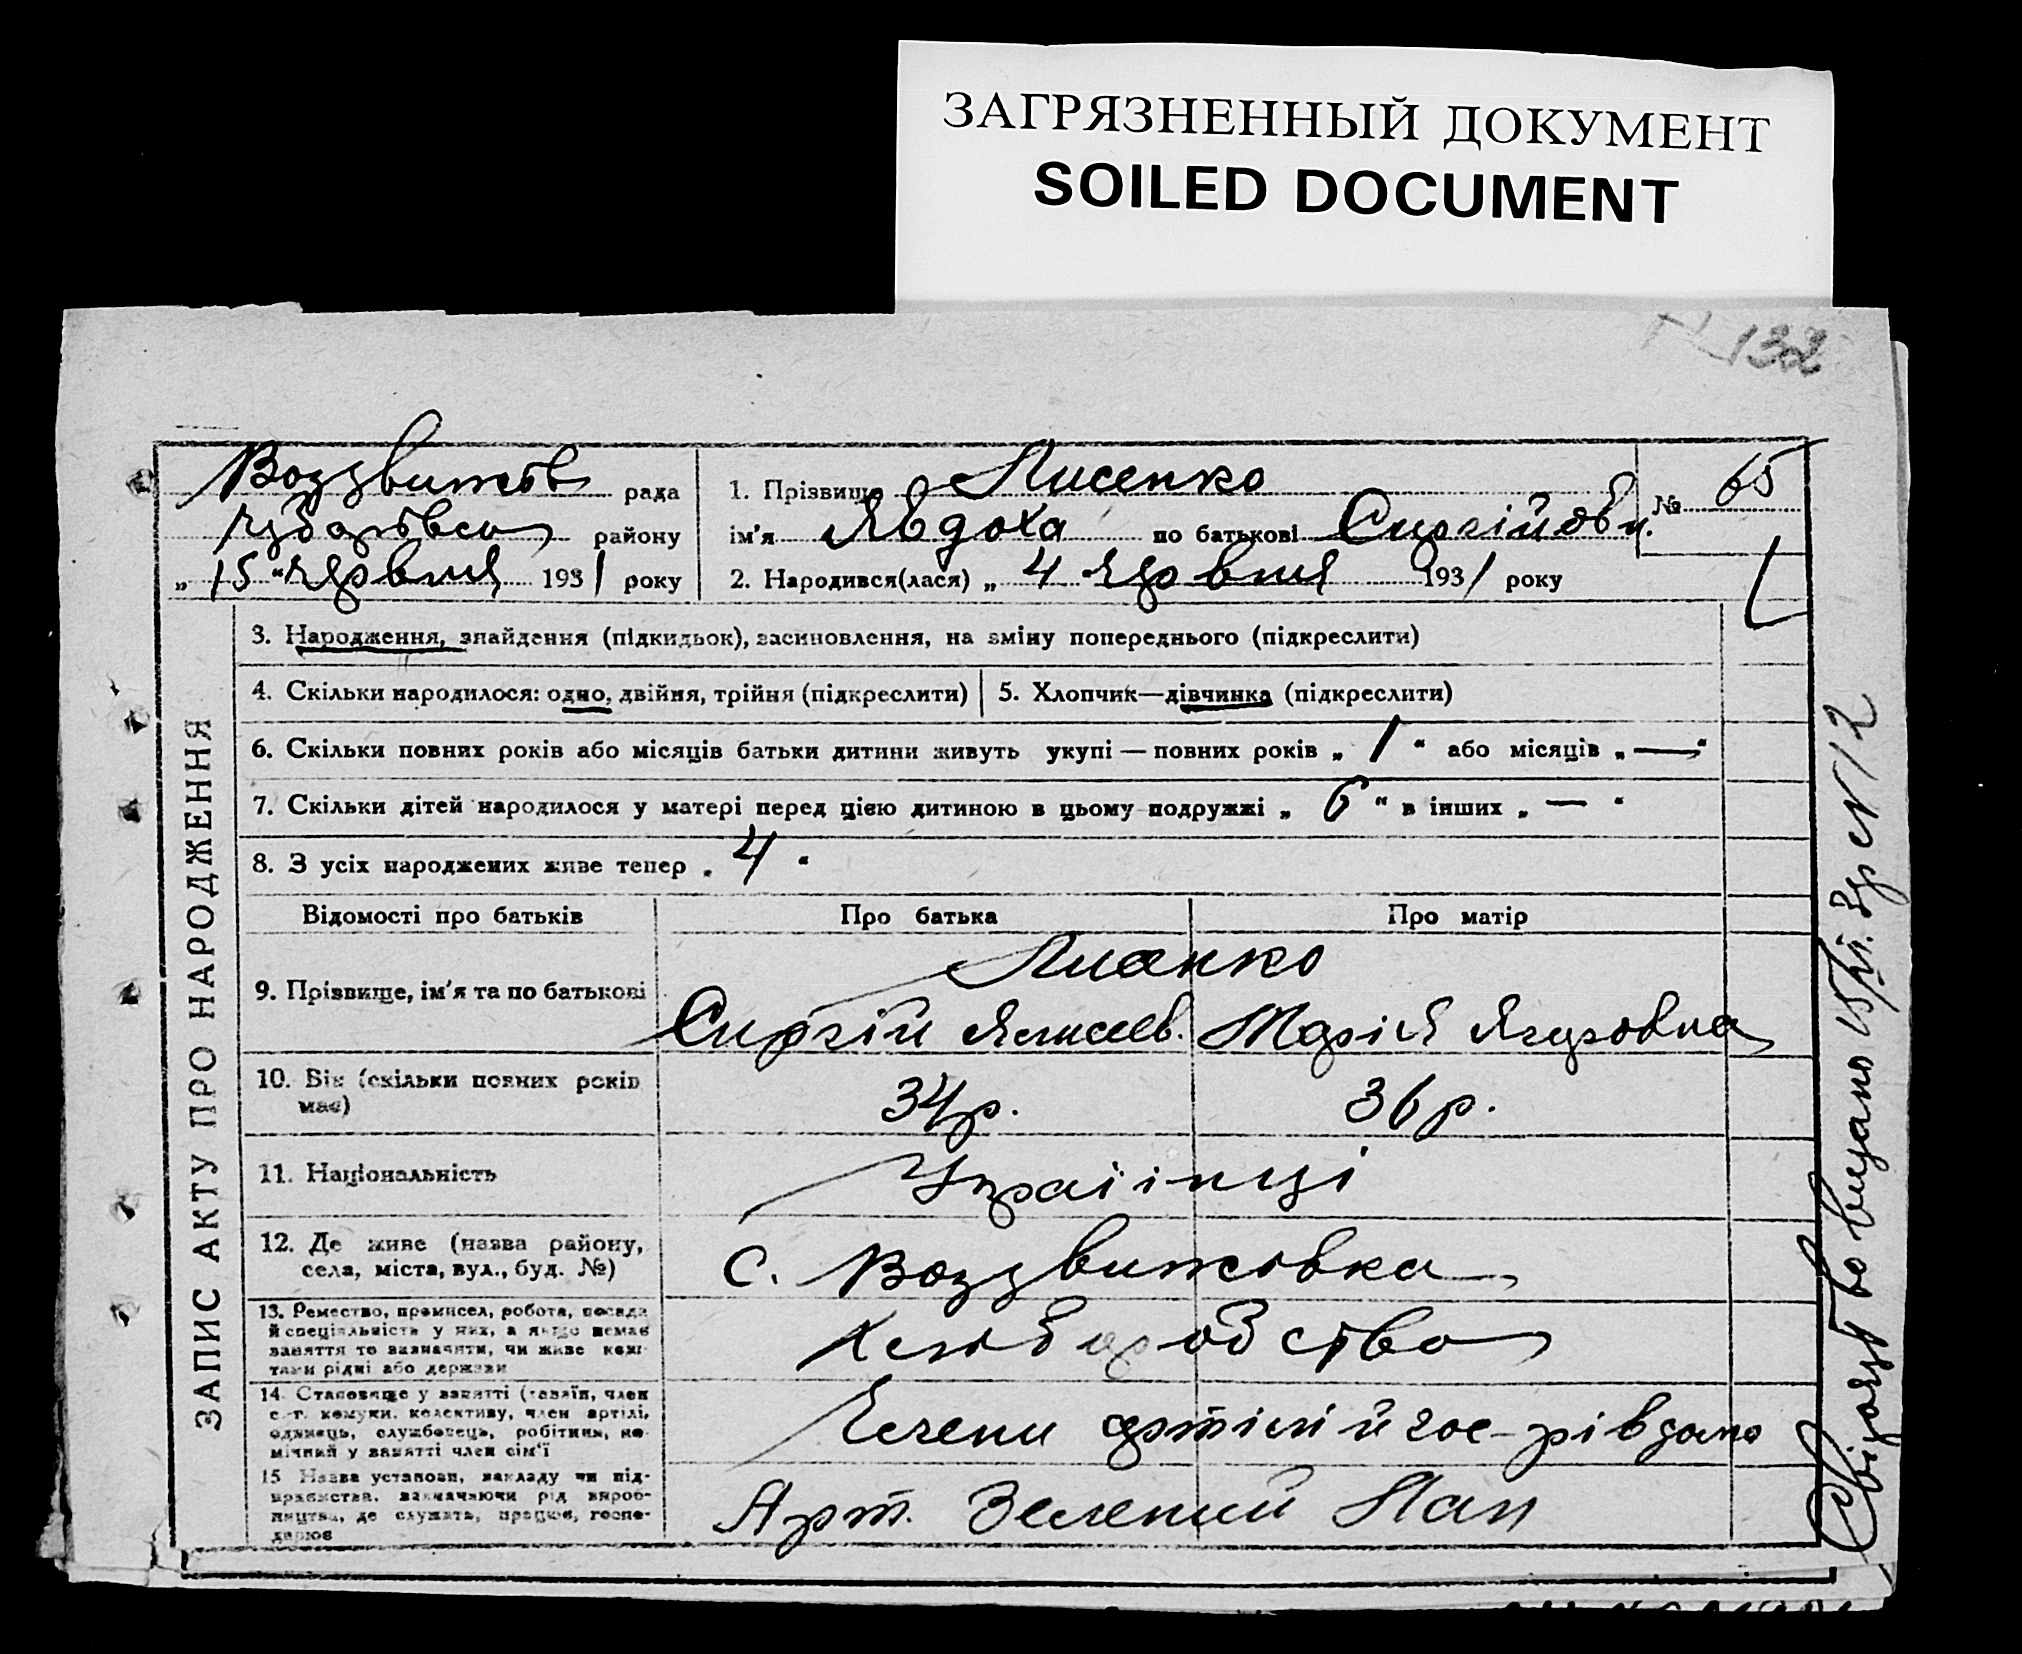 ЗАГРЯЗНЕННЫЙ ДОКУМЕНТ
SOILED DOCUMENT
N 132
Воздвижів рада
району
„ 15 “ червня 1931 року
1. Прізвище Лисенко
ім'я Явдоха по батькові Сиргійовн.
2. Народився(лася) „ 4 червня 1931 року
№ 65
ЗАПИС АКТУ ПРО НАРОДЖЕННЯ
3. Народження, знайдення (підкидьок), засиновлення, на зміну попереднього (підкреслити)
4. Скільки народилося: одно, двійня, трійня (підкреслити)
5. Хлопчик—дівчинка (підкреслити)
6. Скільки повних років або місяців батьки дитини живуть укупі — повних років „ 1 “ або місяців „ — “
7. Скільки дітей народилося у матері перед цією дитиною в цьому подружжі „ 6 “ в інших „ — “
8. З усіх народжених живе тепер „ 4 “
Відомості про батьків
Про батька
Про матір
9. Прізвище, ім'я та по батькові
Лисенко
Сиргій
Марія Ягоровна
10. Вік (скільки повних років має)
34 р.
36 р.
11. Національність
Українці
12. Де живе (назва району,
села, міста, вул., буд. №)
с. Воздвижівка
13. Ремество, промисел, робота, посада
й спеціяльність у них, а якщо немає
заняття то зазначити, чи живе кош-
тами рідні або держави
Хліборобство
14. Становище у занятті (хазяїн, член
с.-г. комуни, колективу, член артілі,
одинець, службовець, робітник, по-
мічний у занятті член сім'ї
Члени артілі й
15 Назва установи, закладу чи під-
приємства, зазначаючи рід вироб-
ництва, де служить, працює, госпо-
дарює
Арт. Зелений Лан
Свідоцтво видано 15/VI. Зр N 12